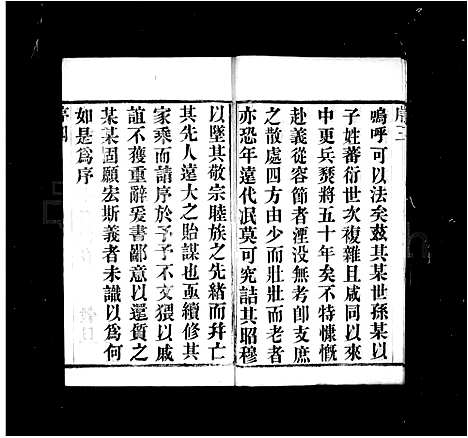 序三
嗚呼可以法矣茲其某世孫某以
子姓蕃衍世次複雜且咸同以來
中更兵燹將五十年矣不特慷慨
赴義從容節者湮沒無考卽支庶
之散處四方由少而壯壯而老者
亦恐年遠代氓莫可究詰其昭穆
以墜其敬宗睦族之先緒而幷亡
其先人遠大之貽謀也亟續修其
家乘而請序於予予不文猥以戚
誼不獲重辭爰書鄙意以還質之
某某固願宏斯義者未識以爲何
如是爲序
序四